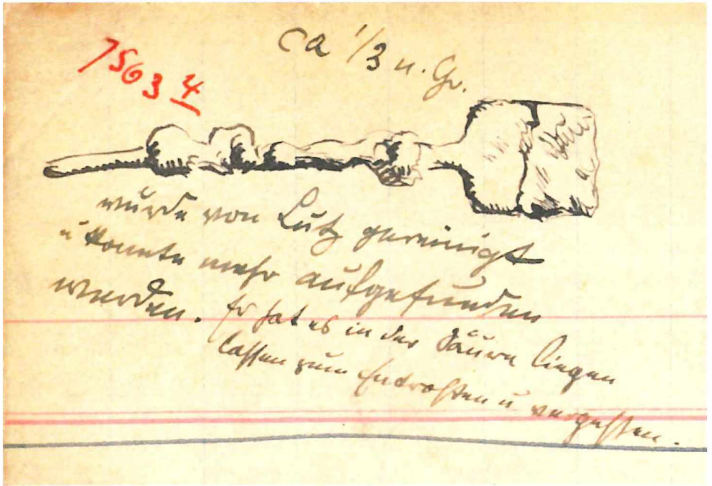 7563 4
ca 1/3 n. Gr.
wurde von Lutz gereinigt
u konnte mehr aufgefunden
werden. Er hat es in der Säure liegen
lassen zum Entrosten u vergessen.